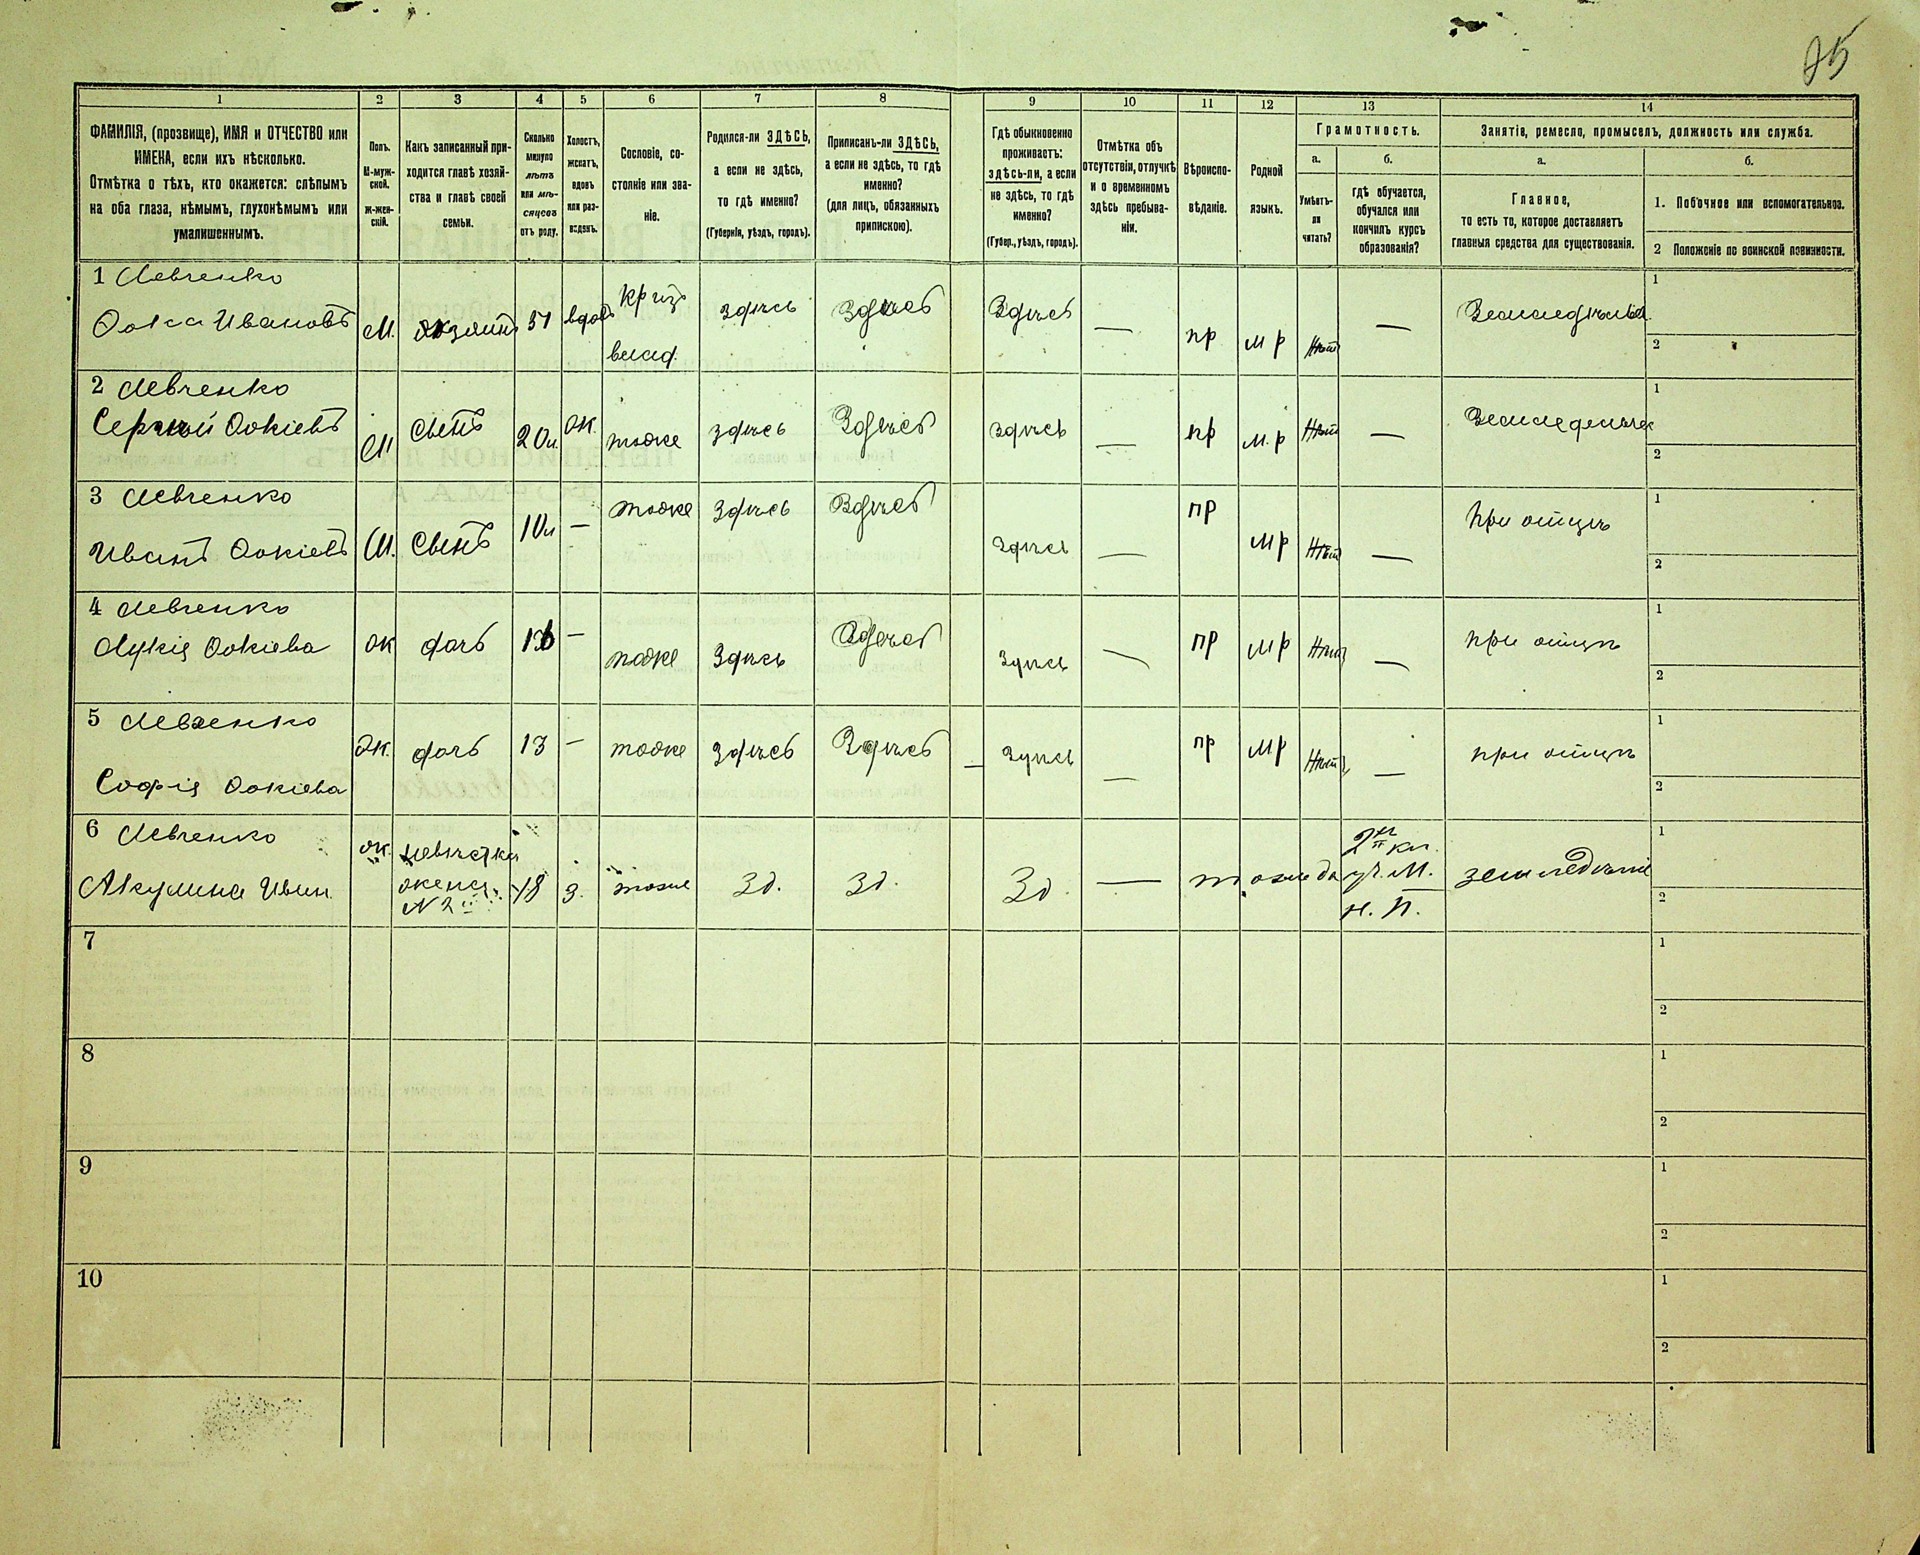 1
2
3
4
5
6
7
8
9
10
11
12
13
14
ФАМИЛІЯ, (прозвище), ИМЯ и ОТЧЕСТВО или
ИМЕНА, если ихъ нѣсколько.
Отмѣтка о тѣхъ, кто окажется: слѣпымъ
на оба глаза, нѣмымъ, глухонѣмымъ или
умалишеннымъ.
Полъ.
М-муж-
ской.
Ж-жен-
скій.
Какъ записанный при-
ходится главѣ хозяй-
ства и главѣ своей
семьи.
Сколько
минуло
лѣтъ
или мѣ-
сяцевъ
отъ роду.
Холостъ,
женатъ,
вдовъ
или раз-
веденъ.
Сословіе, со-
стояніе или зва-
ніе.
Родился-ли ЗДѢСЬ,
а если не здѣсь,
то гдѣ именно?
(Губернія, уѣздъ, городъ).
Приписанъ-ли ЗДѢСЬ,
а если не здѣсь, то гдѣ
именно?
(для лицъ, обязанныхъ
припискою).
Гдѣ обыкновенно
проживаетъ:
здѣсь-ли, а если
не здѣсь, то гдѣ
именно?
(Губер., уѣздъ, городъ).
Отмѣтка объ
отсутствіи, отлучкѣ
и о временномъ
здѣсь пребыва-
ніи.
Вѣроиспо-
вѣданіе.
Родной
языкъ.
Грамотность.
а.
Умѣетъ-
ли
читать?
б.
гдѣ обучается,
обучался или
кончилъ курсъ
образованія?
Занятіе, ремесло, промыселъ, должность или служба.
а.
Главное,
то есть то, которое доставляетъ
главныя средства для существованія.
б.
1. Побочное или вспомогательное.
2 Положеніе по воинской повинности.
1 Левченко
Фока Ивановъ М. Хозяинъ 51 вдовъ Кр изъ
влад. здѣсь Здѣсь Здѣсь — пр м р Нѣтъ —
1
2
2 Левченко
Сергѣй Фокіевъ М Сынъ 20л Ж. тоже здѣсь Здѣсь здѣсь — пр м. р Нѣтъ —
1
2
3 Левченко
Иванъ Фокіевъ М. Сынъ 10л — тоже здѣсь Здѣсь здѣсь — пр м р Нѣтъ — при отцѣ
1
2
4 Левченко
Лукія Фокіева Ж дочь — тоже здѣсь Здѣсь здѣсь — пр м р Нѣтъ — при отцѣ
1
2
5 Левченко
Софія Фокіева Ж. дочь 13 — тоже здѣсь Здѣсь здѣсь — пр м р Нѣтъ — при отцѣ
1
2
6 Левченко
Акулина Иван. Ж. невѣстка
жена
N 2 18 З. тоже Зд. Зд. Зд. — тоже да
2 кл.
уч. М.
н. П. земледѣліе
1
2
7
1
2
8
1
2
9
1
2
10
1
2